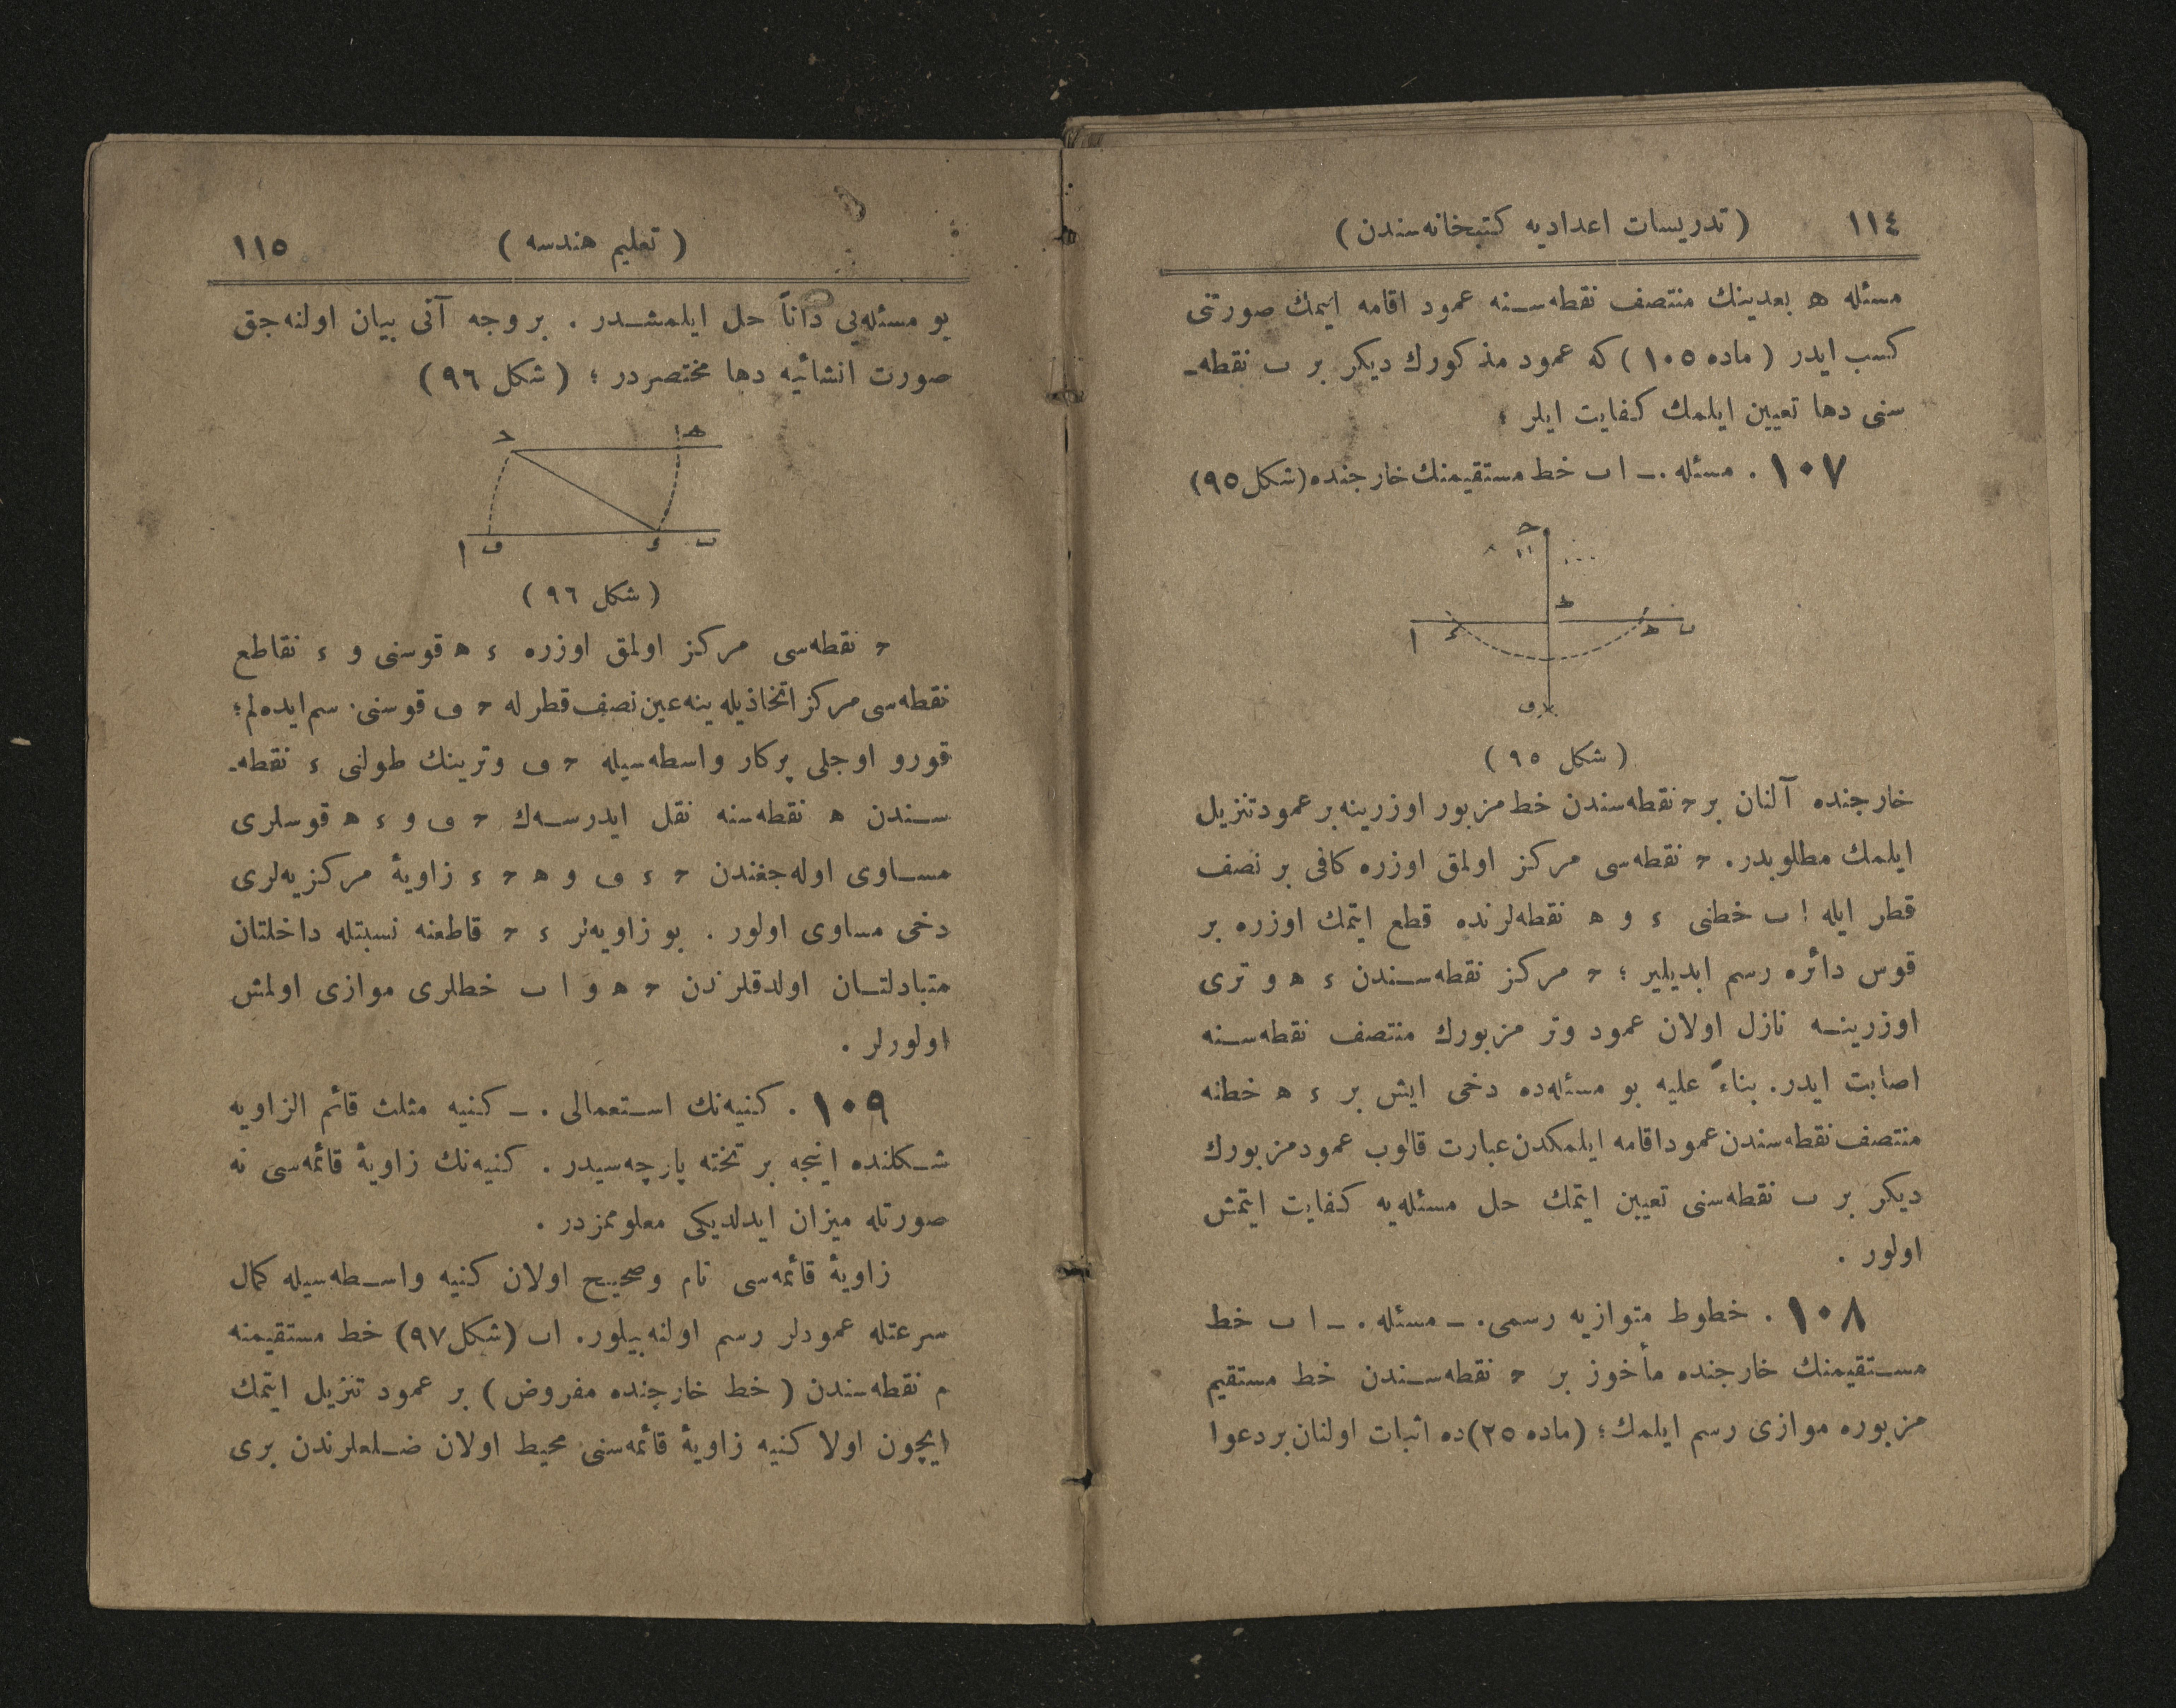 ١١٤ ( تدريسات اعداديه كتبخانه‌سندن )
مسئله ه بعدينك منتصف نقطه‌سنه عمود اقامه ايتمك صورتنى
كسب ايدر ( ماده ١٠٥ ) كه عمود مذكورك ديكر بر ف نقطه‌ـ
سنى دها تعيين ايلمك كفايت ايلر ؛
١٠٧ . مسئله . ــ ا ب خط مستقيمنك خارجنده (شكل ٩٥)
ح
ط
ا ء ه ب
ف
( شكل ٩٥ )
خارجنده آلنان بر ح نقطه‌سندن خط مزبور اوزرينه بر عمود تنزيل
ايلمك مطلوبدر. ح نقطه‌سى مركز اولمق اوزره كافى بر نصف
قطر ايله ا ب خطنى ء و ه نقطه‌لرنده قطع ايتمك اوزره بر
قوس دائره رسم ايديلير ؛ ح مركز نقطه‌سندن ء ه وترى
اوزرينه نازل اولان عمود وتر مزبورك منتصف نقطه‌سنه
اصابت ايدر. بناءً عليه بو مسئله‌ده دخى ايش بر ء ه خطنه
منتصف نقطه‌سندن عمود اقامه ايلمكدن عبارت قالوب عمود مزبورك
ديكر بر ف نقطه‌سنى تعيين ايتمك حل مسئله‌يه كفايت ايتمش
اولور .
١٠٨ . خطوط متوازيه رسمى. ــ مسئله . ــ ا ب خط
مستقيمنك خارجنده مأخوز بر ح نقطه‌سندن خط مستقيم
مزبوره موازى رسم ايلمك؛ (ماده ٢٥)ده اثبات اولنان بر دعوا
( تعليم هندسه ) ١١٥
بو مسئله‌يى ذاتاً حل ايلمشدر . بر وجه آتى بيان اولنه‌جق
صورت انشائيه دها مختصردر ؛ ( شكل ٩٦ )
ح ه
ا ف ء ب
( شكل ٩٦ )
ح نقطه‌سى مركز اولمق اوزره ء ه قوسنى و ء نقاطع
نقطه‌سى مركز اتخاذيله ينه عين نصف قطر له ح ف قوسنى رسم ايده‌لم؛
قورو اوجلى پركار واسطه‌سيله ح ف وترينك طولنى ء نقطه‌ـ
سندن ه نقطه‌سنه نقل ايدرسه‌ك ح ف و ء ه قوسلرى
مساوى اوله‌جغندن ح ء ف و ه ح ء زاويهٔ مركزيه‌لرى
دخى مساوى اولور . بو زاويه‌لر ء ح قاطعنه نسبتله داخلتان
متبادلتان اولدقلرندن ح ه و ا ب خطلرى موازى اولمش
اولورلر .
١٠٩ . كنيه‌نك استعمالى . ــ كنيه مثلث قائم الزاويه
شكلنده اينجه بر تخته پارچه‌سيدر . كنيه‌نك زاويهٔ قائمه‌سى نه
صورتله ميزان ايدلديكى معلوممزدر .
زاويهٔ قائمه‌سى تام وصحيح اولان كنيه واسطه‌سيله كمال
سرعتله عمودلر رسم اولنه بيلور. اب (شكل ٩٧) خط مستقيمنه
م نقطه‌سندن ( خط خارجنده مفروض ) بر عمود تنزيل ايتمك
ايچون اولا كنيه زاويهٔ قائمه‌سنى محيط اولان ضلعلرندن برى